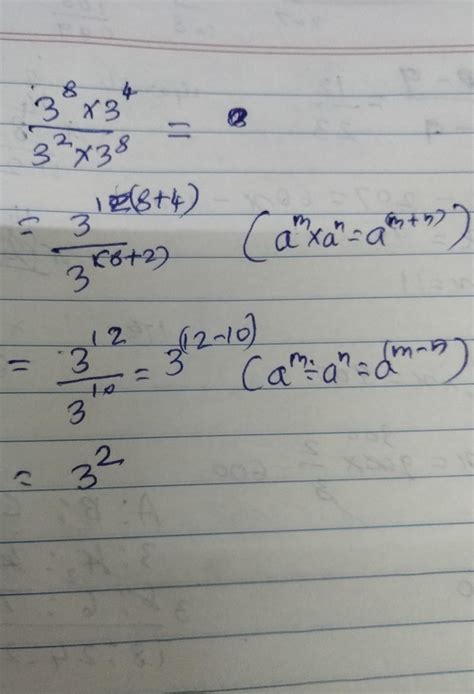 3^8 × 3^4 / 3^2 × 3^8 =
= 3^(8+4) / 3^(8+2) (a^m × a^n = a^(m+n))
= 3^12 / 3^10 = 3^(12-10) (a^m ÷ a^n = a^(m-n))
= 3^2